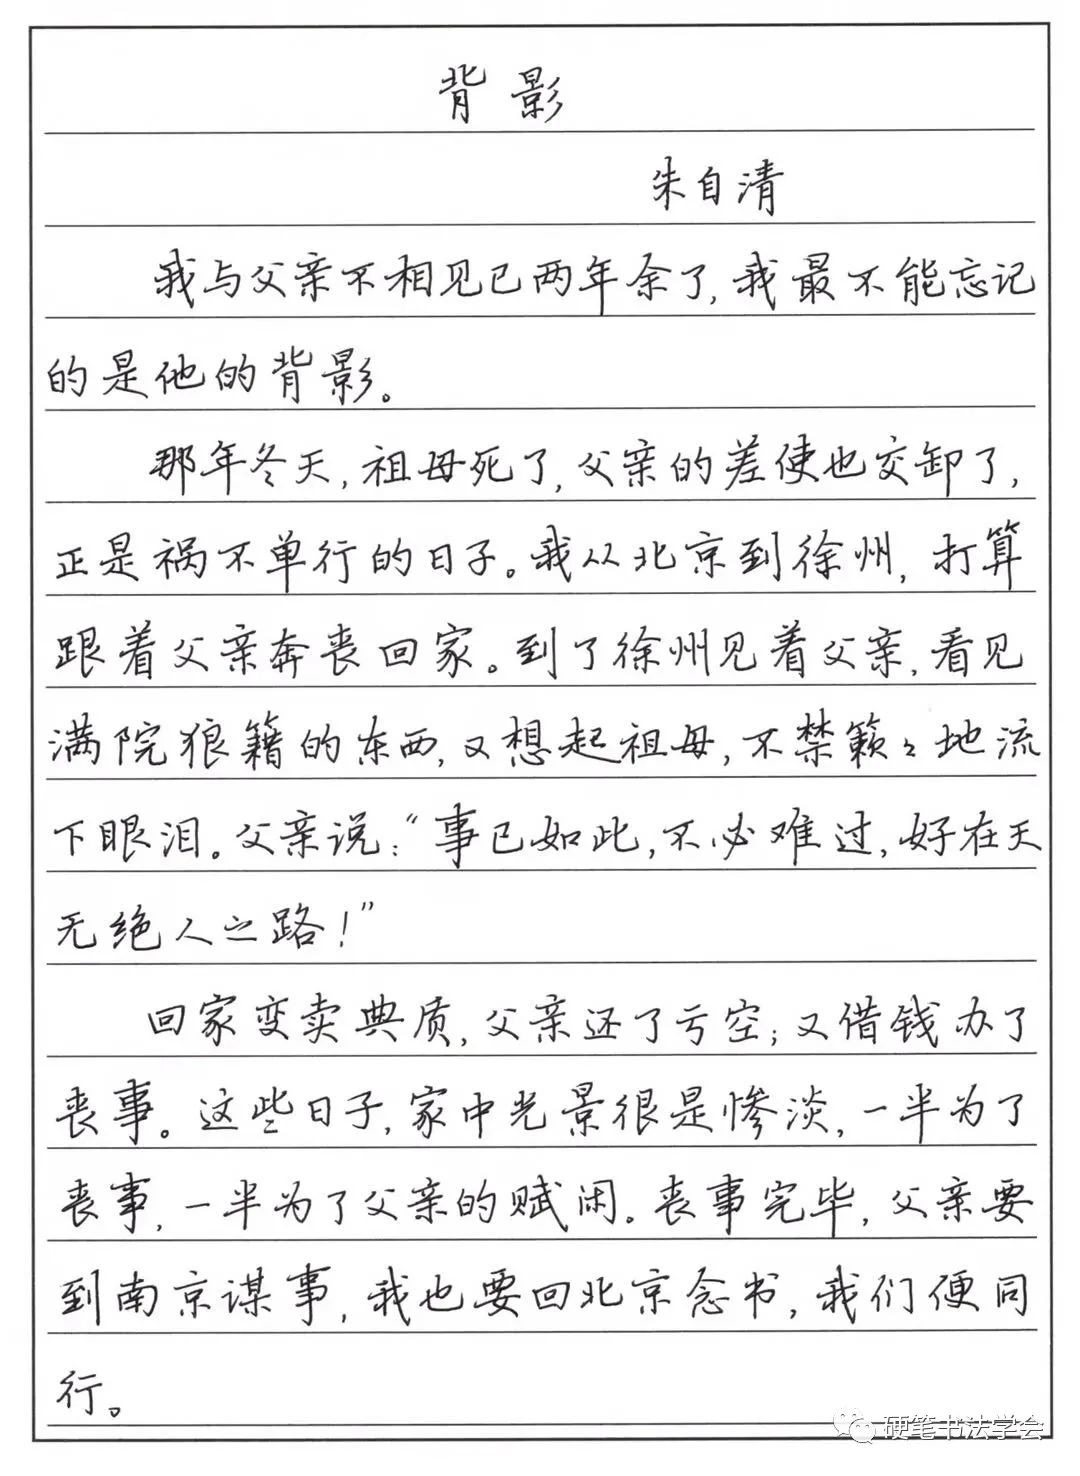 背影
朱自清
我与父亲不相见已两年余了,我最不能忘记
的是他的背影。
那年冬天,祖母死了,父亲的差使也交卸了,
正是祸不单行的日子。我从北京到徐州,打算
跟着父亲奔丧回家。到了徐州见着父亲,看见
满院狼籍的东西,又想起祖母,不禁簌々地流
下眼泪。父亲说:“事已如此,不必难过,好在天
无绝人之路!”
回家变卖典质,父亲还了亏空;又借钱办了
丧事。这些日子,家中光景很是惨淡,一半为了
丧事,一半为了父亲的赋闲。丧事完毕,父亲要
到南京谋事,我也要回北京念书,我们便同
行。
硬笔书法学会